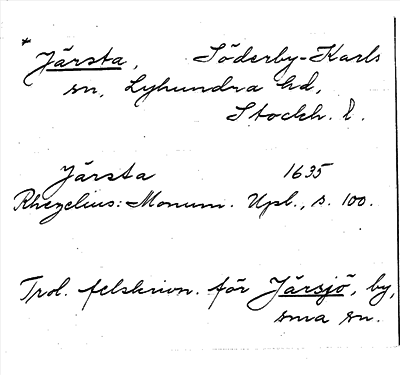 * Järsta, Söderby-Karls
sn, Lyhundra hd,
Stockh. l.
Järsta 1635
Rhezelius: Monum. Upl., s. 100.
Trol. felskrivn. för Järsjö, by,
sma sn.